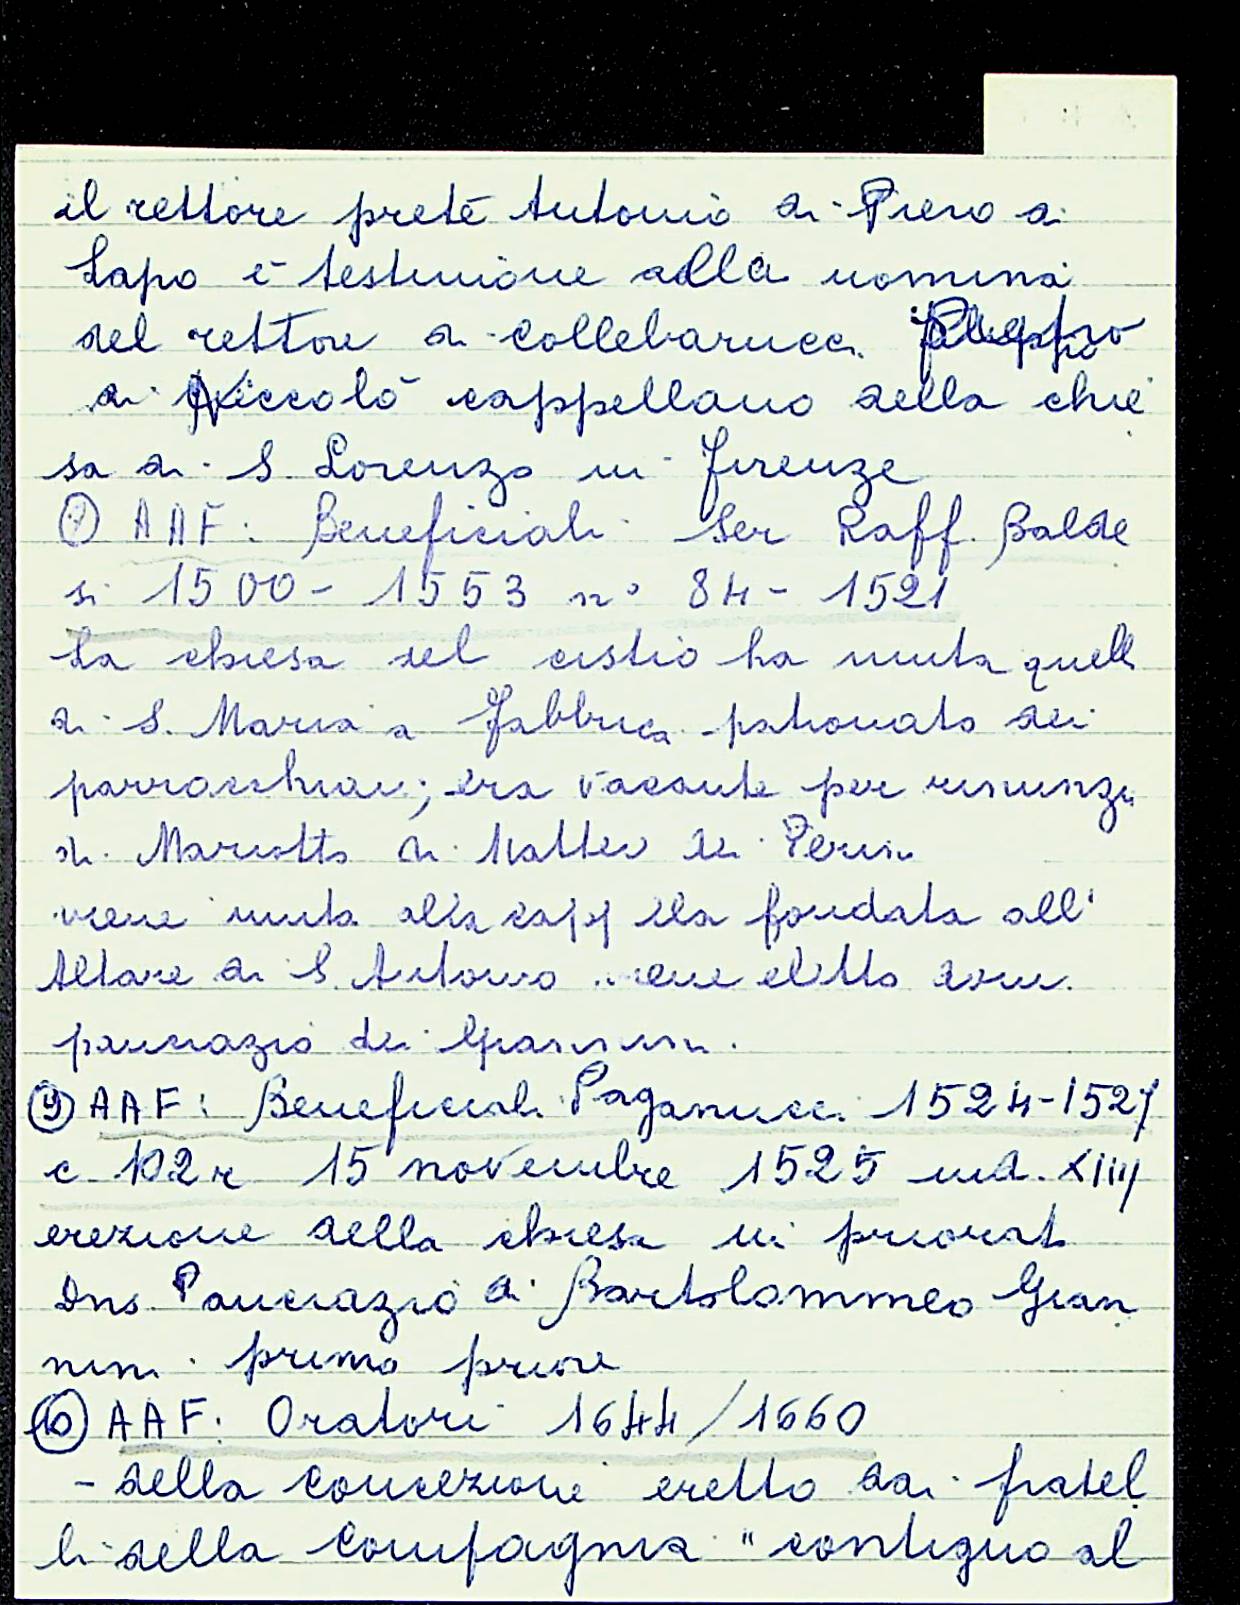 il rettore prete Antonio di Piero di
Lapo è testimone alla nomina
del rettore di Collebarucci
di Niccolò cappellano della chie
sa di S. Lorenzo in Firenze
AAF: Beneficiali Ser Raff. Balde
si 1500 - 1553 n° 84 - 1521
La chiesa del cistio ha unita quell
di S. Maria a Fabbrica patronato dei
parrocchiani; era vacante per rinunzi
di Mariotto di Matteo dei Perini
viene unita alla capp lla fondata all'
Altare di S. Antonio viene eletto dom.
pancrazio dei Giannini.
(9) AAF: Beneficiali Paganucci 1524-1527
c 102r 15 novembre 1525 ind. XIIIJ
erezione della chiesa in priorato
Dns. Pancrazio di Bartolommeo Gian
nini primo priore
(10) AAF: Oratori 1644/1660
- della Concezione eretto dai fratel
li della Compagnia "contiguo al